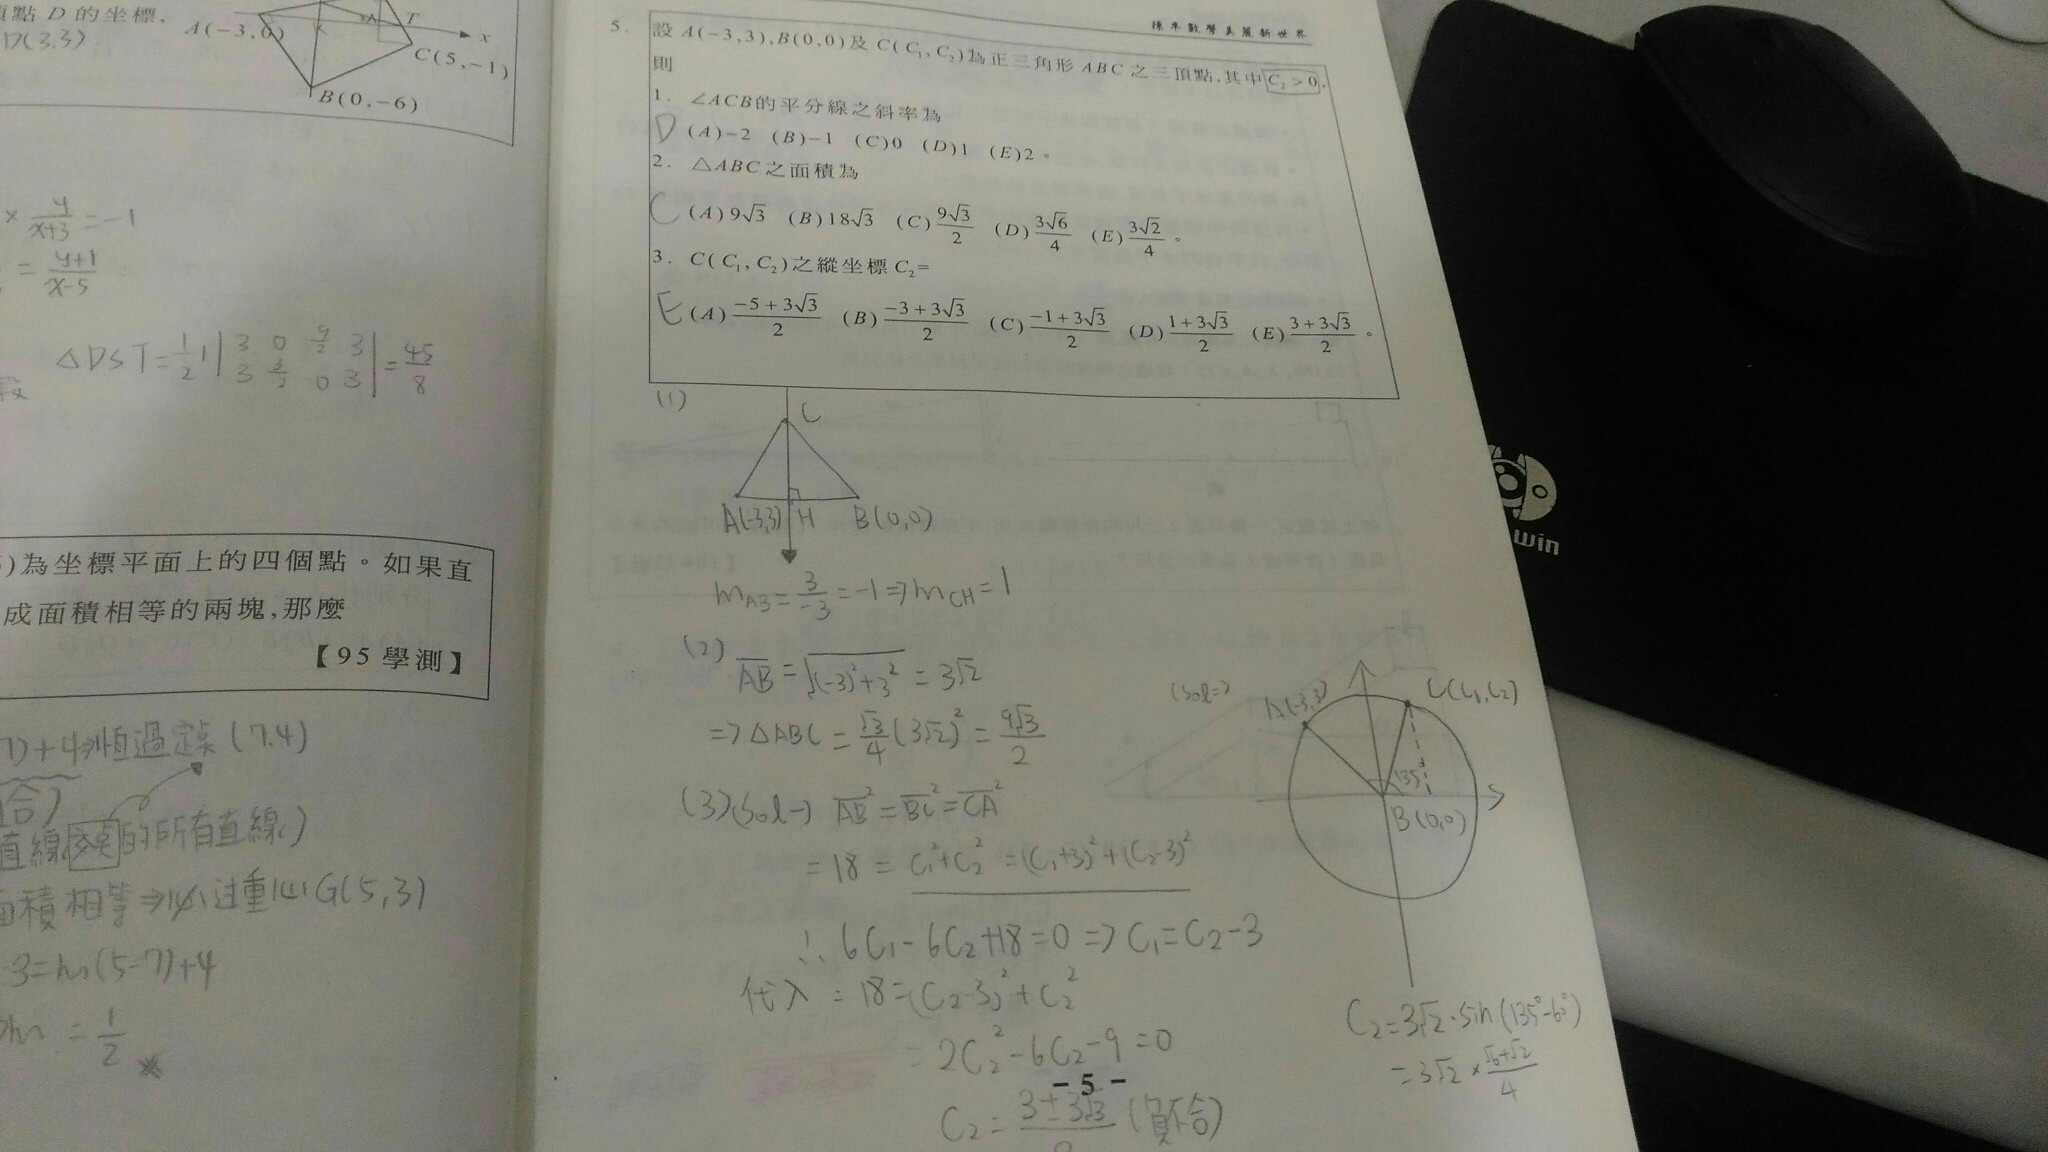 頂點 D 的坐標.
D(3,3)
A(-3,0)
T
x
C(5,-1)
B(0,-6)
× y/(x+3) = -1
= (y+1)/(x-5)
△DST = 1/2 | 3 0 9/2 3 | = 45/8
3 3/2 0 3
)為坐標平面上的四個點。如果直
成面積相等的兩塊,那麼
【95學測】
7)+4⇒恒過定點 (7,4)
直線 交點 的所有直線)
面積相等⇒ 必過重心G(5,3)
-3=m(5-7)+4
m = 1/2
陳卓數學美麗新世界
5. 設 A(-3,3),B(0,0)及 C(C₁,C₂)為正三角形 ABC 之三頂點,其中 C₂>0,
則
1. ∠ACB的平分線之斜率為
D (A)-2 (B)-1 (C)0 (D)1 (E)2。
2. △ABC之面積為
C (A)9√3 (B)18√3 (C) 9√3/2 (D) 3√6/4 (E) 3√2/4。
3. C(C₁,C₂)之縱坐標 C₂=
E (A) (-5+3√3)/2 (B) (-3+3√3)/2 (C) (-1+3√3)/2 (D) (1+3√3)/2 (E) (3+3√3)/2。
(1)
C
A(-3,3) H B(0,0)
m_AB = 3/-3 = -1 ⇒ m_CH = 1
(2) AB = √((-3)²+3²) = 3√2
⇒ △ABC = √3/4 (3√2)² = 9√3/2
(3)(Sol一) AB² = BC² = CA²
= 18 = C₁²+C₂² = (C₁+3)²+(C₂-3)²
∴ 6C₁-6C₂+18=0 ⇒ C₁=C₂-3
代入 = 18=(C₂-3)²+C₂²
= 2C₂²-6C₂-9=0
C₂= 3±3√3 (負不合)
(Sol二)
A(-3,3)
C(C₁,C₂)
135°
B(0,0)
C₂=3√2·sin(135°-60°)
=3√2×(√6+√2)/4
- 5 -
win